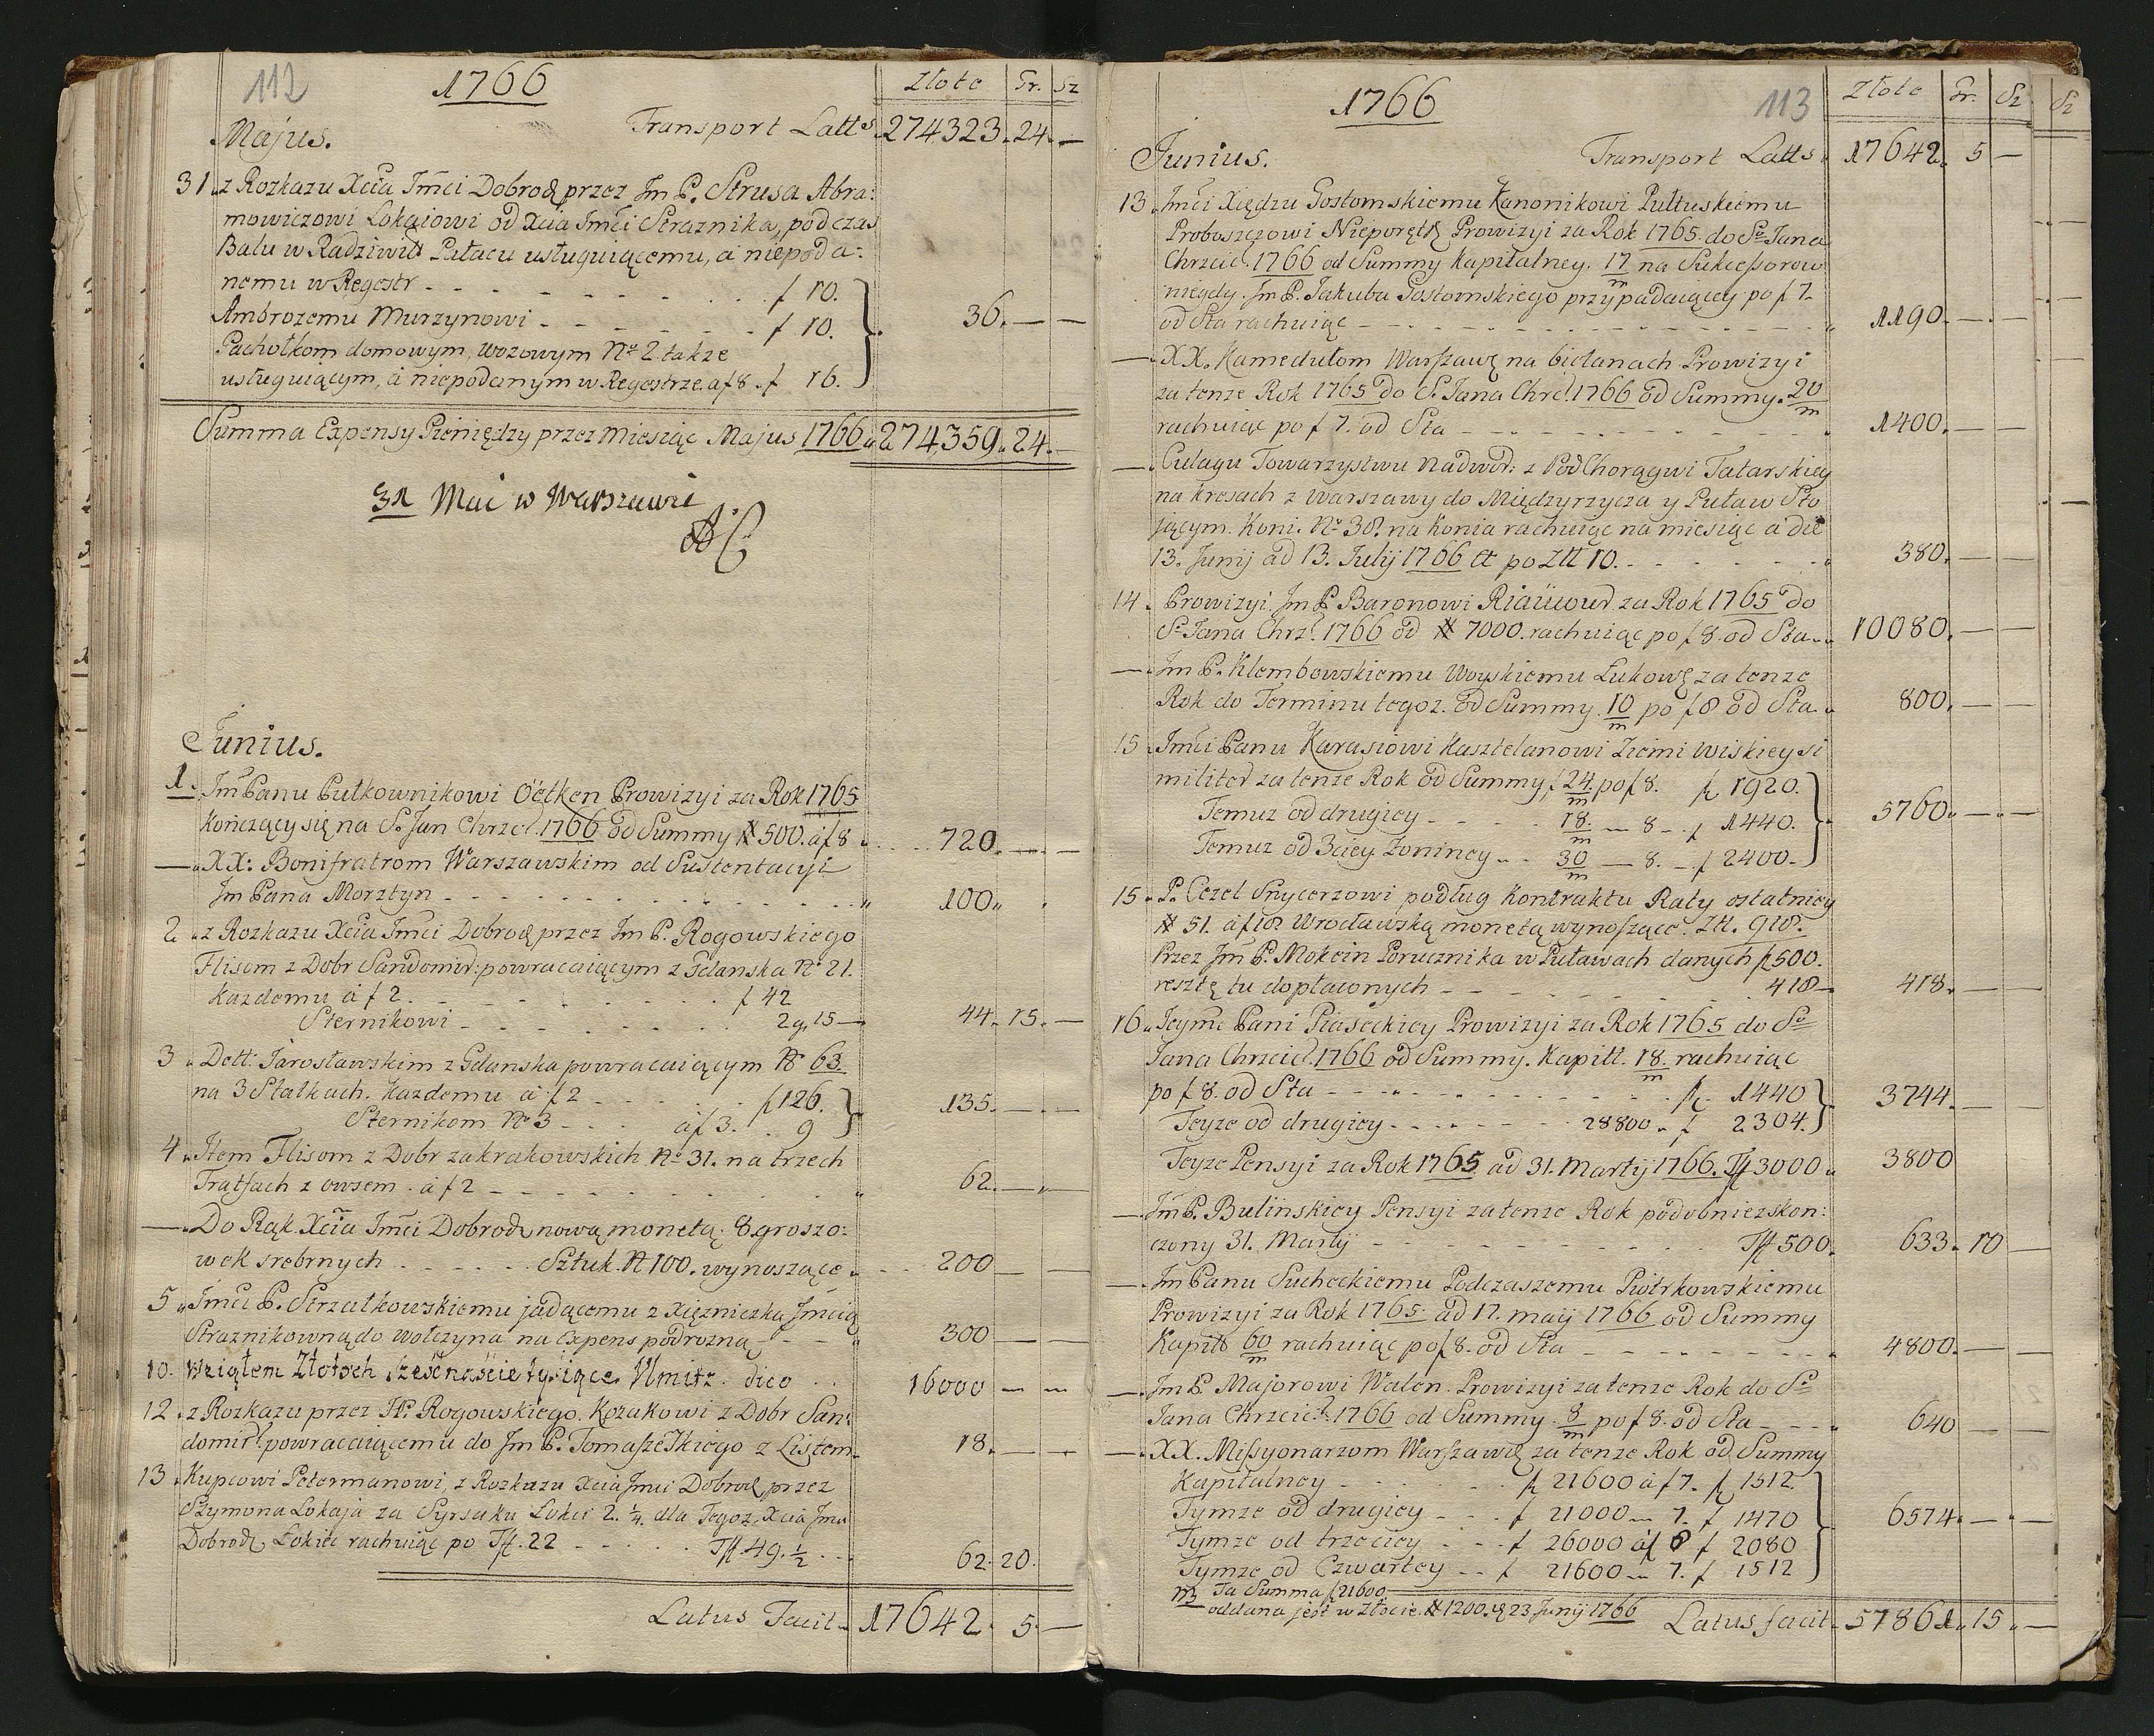 112
1766
Złote Gr. Sz
Majus. Transport Latt⁹ 274323. 24. —
31. z Rozkazu Xcia Jmći Dobrodz przez Jm P. Strusa Abra:
mowiczowi Lokaiowi od Xcia Jmći Straznika, podczas
Balu w Radziwiłł Pałacu usługuiącemu, a niepoda:
nemu w Regestr - - - f 10.
Ambrozemu Murzynowi - - - f 10. } 36. — —
Pachołkom domowym, wozowym Nº 2 także
usługuiącym, a niepodanym w Regestrze. a f 8. f 16.
Summa Expensy Pieniędzy przez Miesiąc Majus 1766. 274,359. 24. —
31 Mai w Warszawie
AC
Junius.
1. Jm Panu Pułkownikowi Oëtken Prowizyi za Rok 1765
Kończący się na S. Jan Chrzcl. 1766 od Summy # 500. a f 8 720. — —
— XX: Bonifratrom Warszawskim od Sustentacyi
Jm Pana Morsztyn - - - 100.
2. z Rozkazu Xcia Jmći Dobrodz przez Jm P. Rogowskiego
Flisom z Dobr Sandomir: powracaiącym z Gdanska Nº 21.
Kazdemu a f 2. - - - f 42
Sternikowi - - - 2 g. 15 — 44. 15. —
3. Dett: Jarosławskim z Gdanska powracaiącym Nº 63.
na 3 Statkach. Kazdemu a f 2 - - - f 126. } 135. — —
Sternikom Nº 3 - - - a f 3. 9
4. Item Flisom z Dobr zakrakowskich Nº 31. na trzech
Tratfach z owsem. a f 2 - - - 62. — —
— Do Rąk Xcia Jmći Dobrodz nową monetą. 8 groszo:
wek srebrnych - - - Sztuk. N 100. wynoszące. 200 — —
5. Jmći P. Strzałkowskiemu jadącemu z Xiężniczką Jmcią
Straznikowną do Wołczyna na Expens podrozną 300 — —
10. Wziąłem Złotych szesnascie tysiące dico 16000 — —
12. z Rozkazu przez JP. Rogowskiego. Kozakowi z Dobr San:
domir powracaiącemu do Jm P. Tomaszewskiego z Listem 18. — —
13. Kupcowi Petermanowi, z Rozkazu Xcia Jmci Dobrodz przez
Szymona Lokaja za Syrsaku Łokci 2. ¼. dla Tegoz. Xcia Jmci
Dobrodz. Łokiec rachuiąc po Tf. 22 - - - Tf. 49. ½ 62. 20.
Latus Facit 17642. 5. —
1766
113
Złote Gr. Sz
Sz
Junius. Transport Latts. 17642. 5 —
13. Jmći Xiędzu Gostomskiemu Kanonikowi Pułtuskiemu
Proboszczowi Nieporętz Prowizyi za Rok 1765. do Sº Jana
Chrzcicl. 1766 od Summy Kapitalney. 17/m na Sukcessorow
niegdy. Jm P. Jakuba Gostomskiego przypadaiącey po f 7.
od Sta rachuiąc - - - 1190. — —
— XX. Kamedułom Warszawz na bielanach Prowizyi
za tenze Rok 1765 do S. Jana Chrcl. 1766 od Summy. 20/m
rachuiąc po f 7. od Sta - - - 1400. — —
— Culagu Towarzystwu Nadwor: z Pod Chorągwi Tatarskiey
na kresach z Warszawy do Międzyrzycza y Puław Sto
jącym. Koni. Nº 38. na Konia rachuiąc na miesiąc a die
13. Junij ad 13. Julij 1766 a po Złt 10. - - - 380. — —
14. Prowizyi. Jm P. Baronowi Riaüour za Rok 1765 do
Sº Jana Chrz. 1766 od # 7000. rachuiąc po f 8. od Sta 10080. — —
— Jm P. Klembowskiemu Woyskiemu Łukowz za tenze
Rok do Terminu tegoz. od Summy. 10/m po f 8 od Sta 800. — —
15. Jmći Panu Karasiowi Kasztelanowi Ziemi Wiskiey si
militer za tenze Rok od Summy, f 24/m. po f 8. f 1920.
Temuz od drugiey - - - 18/m — 8 — f 1440. } 5760. — —
Temuz od 3ciey Zoniney 30/m — 8. — f 2400.
15. P. Cezel Snycerzowi podług Kontraktu Raty ostatniey
# 51. a f 18 Wrocławską monetą wynoszące. Złt. 918.
Przez Jm P. Mokcin Porucznika w Puławach danych f 500.
resztę tu dopłaconych - - - 418 418. — —
16. Jeyme Pani Piaseckiey Prowizyi za Rok 1765 do Sº
Jana Chrzcicl. 1766 od Summy. Kapitt. 18/m. rachuiąc
po f 8. od Sta - - - f 1440 } 3744. — —
Teyze od drugiey - - - 28800. f 2304.
Teyze Pensyi za Rok 1765 ad 31. Martij 1766. Tf 3000. 3800
— Jm P. Bulinskiey Pensyi za tenze Rok podobniez skon:
czony 31. Martij - - - Tf 500. 633. 10 —
— Jm Panu Sucheckiemu Podczaszemu Piotrkowskiemu
Prowizyi za Rok 1765. ad 17. maij 1766 od Summy
Kapitt 60/m rachuiąc po f 8. od Sta - - - 4800. — —
— Jm P. Majorowi Walen. Prowizyi za tenze Rok do Sº
Jana Chrzcicl. 1766 od Summy. 8/m po f 8. od Sta - - - 640 — —
— XX. Missyonarzom Warszawz za tenze Rok od Summy
Kapitalney - - - f 21600 a f 7. f 1512.
Tymze od drugiey - - - f 21000 — 7. f 1470 } 6574. — —
Tymze od trzeciey - - - f 26000 a f 8 f 2080
Tymze od Czwartey - - f 21600 — 7. f 1512
NB Ta Summa f 21600
oddana jest w Złocie. # 1200. 23 Junij 1766 Latus facit 57861. 15. —